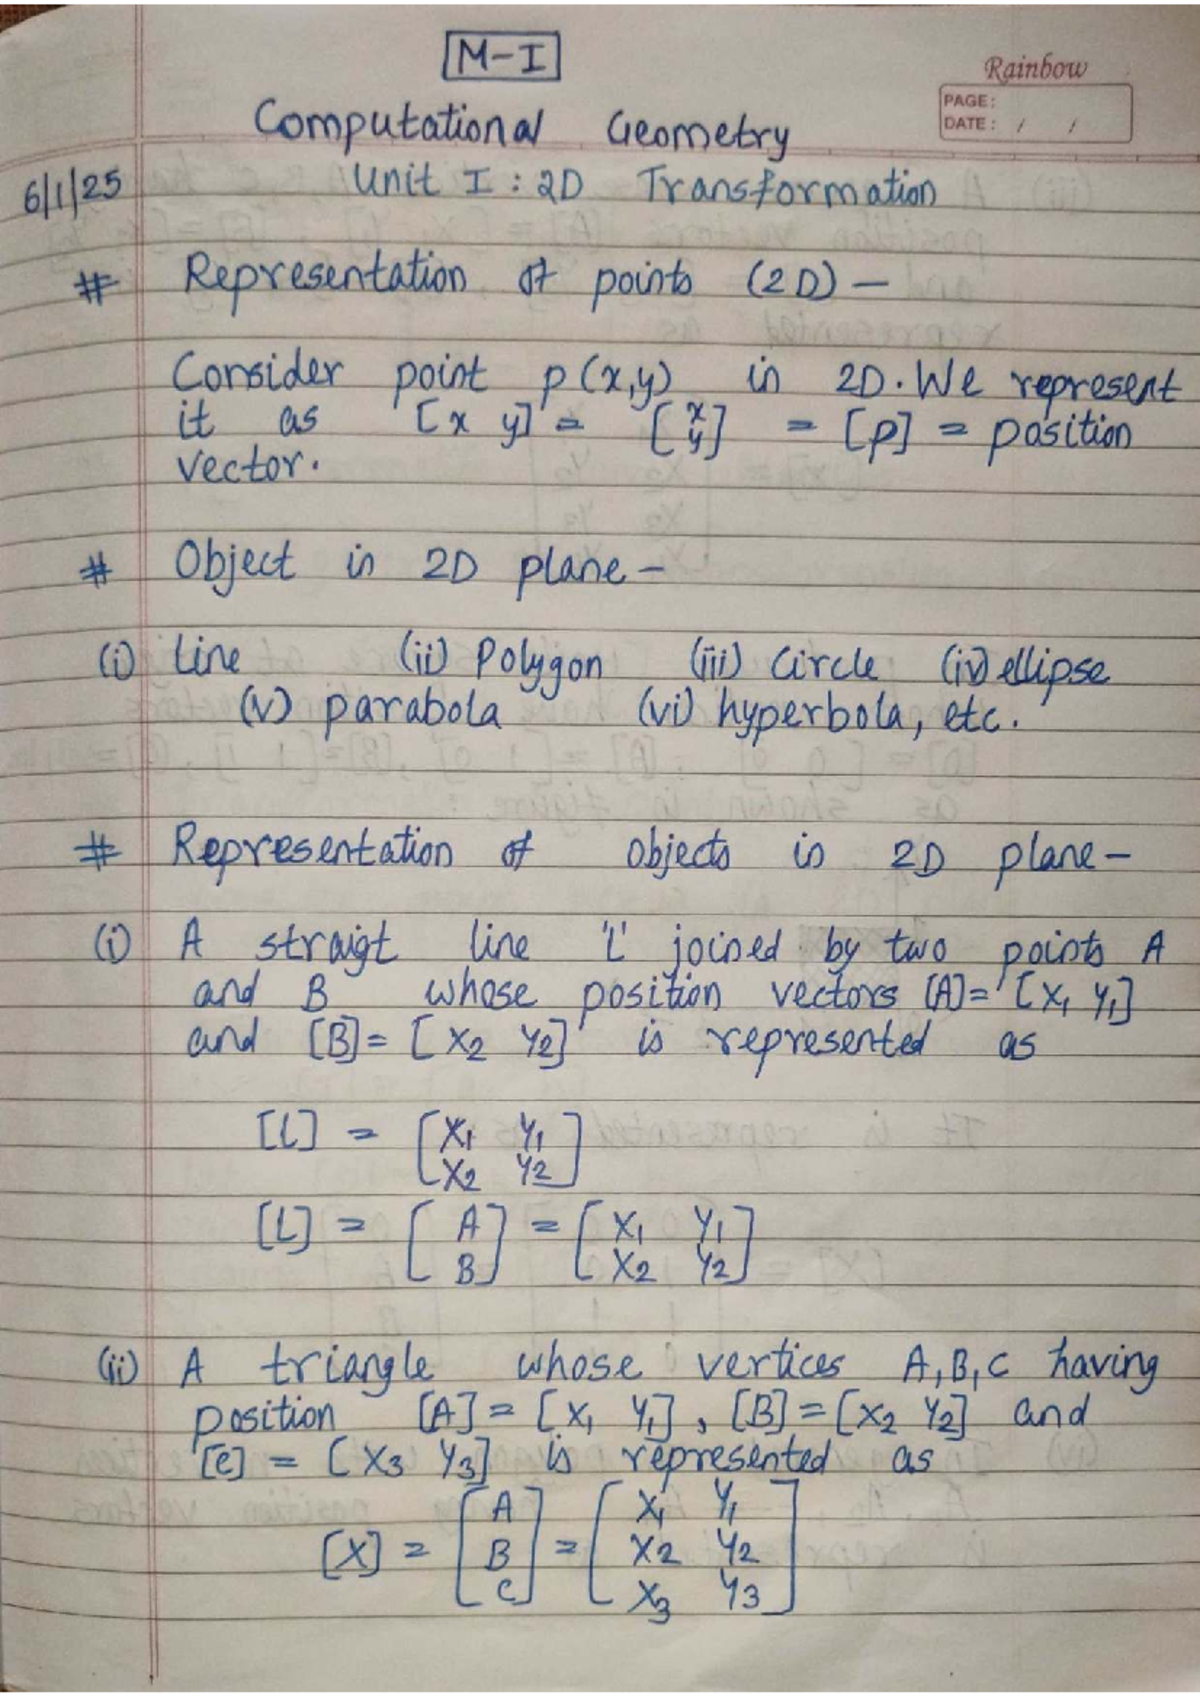 M-I
Rainbow
PAGE:
DATE: / /
Computational Geometry
6/1/25 Unit I : 2D Transformation
# Representation of points (2D) -
Consider point p(x,y) in 2D. We represent
it as [x y] = [x y] = [p] = position
vector.
# Object in 2D plane -
(i) Line (ii) Polygon (iii) Circle (iv) ellipse
(v) parabola (vi) hyperbola, etc.
# Representation of objects in 2D plane -
(i) A straigt line 'L' joined by two points A
and B whose position vectors [A] = [X1 Y1]
and [B] = [X2 Y2] is represented as
[L] = [X1 Y1
X2 Y2]
[L] = [A = [X1 Y1
B] X2 Y2]
(ii) A triangle whose vertices A, B, C having
position [A] = [X1 Y1], [B] = [X2 Y2] and
[C] = [X3 Y3] is represented as
[X] = [A B C] = [X1 Y1
X2 Y2
X3 Y3]